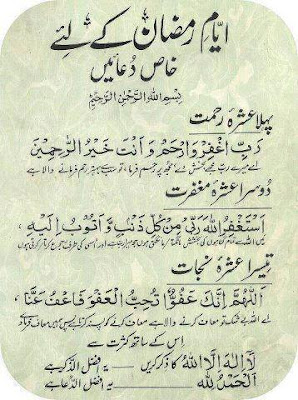 ایّامِ رمضان کے لئے
خاص دُعائیں
بِسْمِ اللّٰهِ الرَّحْمٰنِ الرَّحِيْمِ
پہلا عشرۂ رحمت
رَبِّ اغْفِرْ وَارْحَمْ وَاَنْتَ خَيْرُ الرّٰحِمِيْنَ
اے میرے رب مجھے بخش دے مجھ پر رحم فرما، تو سب سے بہتر رحم فرمانے والا ہے
دُوسرا عشرۂ مغفرت
اَسْتَغْفِرُ اللّٰهَ رَبِّىْ مِنْ كُلِّ ذَنْۢبٍ وَّاَتُوْبُ اِلَيْهِ
میں اللہ سے تمام گناہوں کی بخشش مانگتا
تیسرا عشرۂ نجات
اَللّٰهُمَّ اِنَّكَ عَفُوٌّ تُحِبُّ الْعَفْوَ فَاعْفُ عَنَّا
اے اللہ بے شک تو معاف کرنے والا ہے معاف کرنے کو پسند کرتا ہے پس ہمیں معاف فرما دے
اس کے ساتھ کثرت سے
لَآ اِلٰهَ اِلَّا اللّٰهُ کا ذکر کریں — یہ افضل الذکر ہے
اَلْحَمْدُ لِلّٰهِ — یہ افضل الدعا ہے